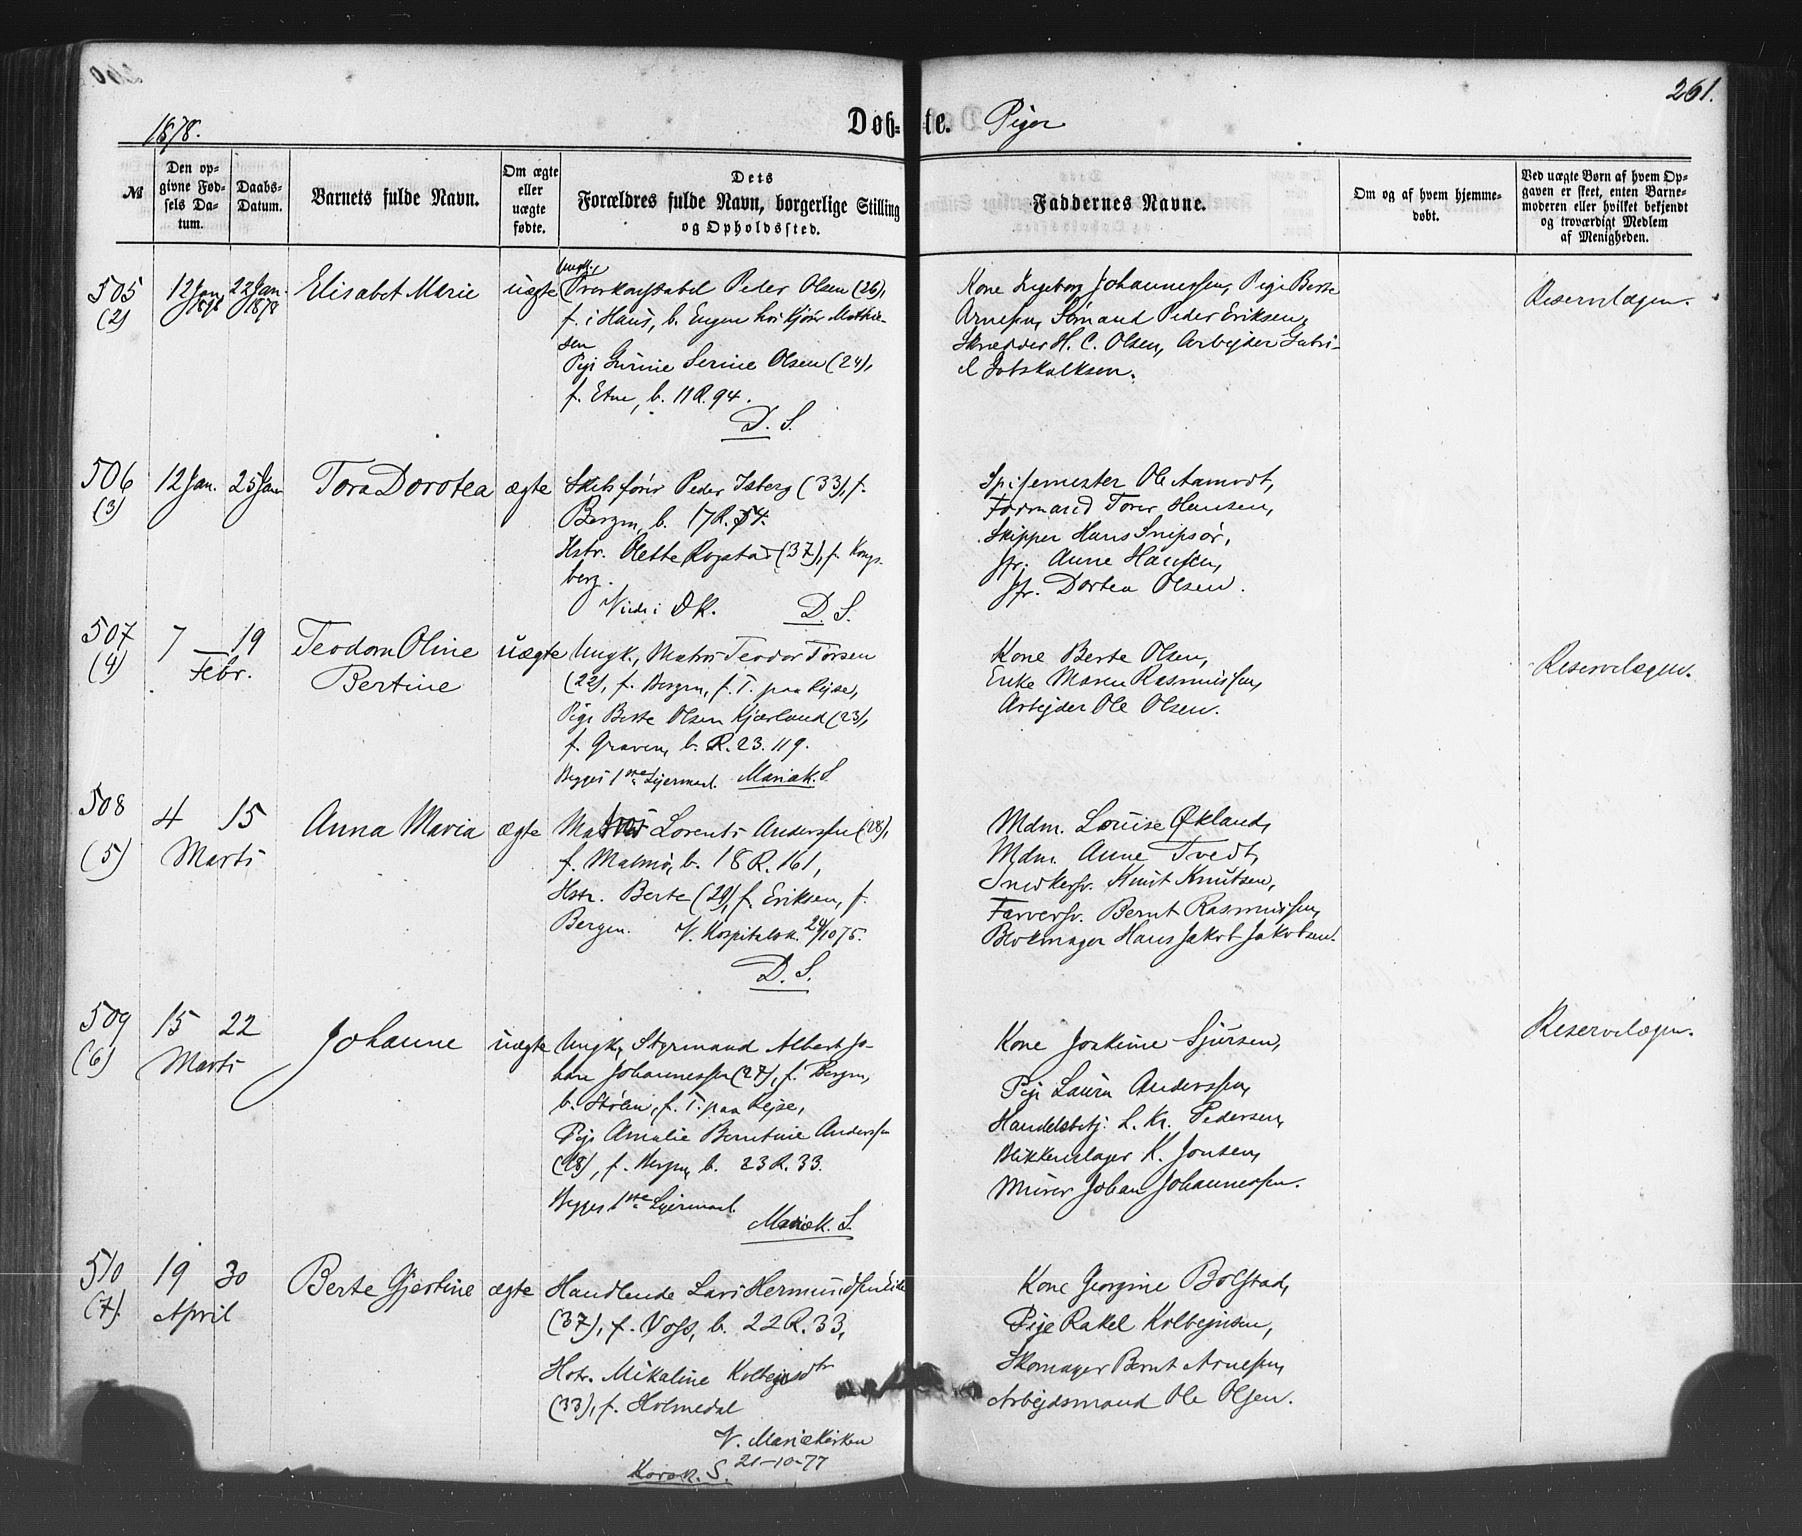 261.
1878.
Døb-te. Piger
№
Den op-
givne Fød-
sels Da-
tum.
Daabs-
Datum.
Barnets fulde Navn.
Om ægte
eller
uægte
fødte.
Dets
Forældres fulde Navn, borgerlige Stilling
og Opholdssted.
Faddernes Navne.
Om og af hvem hjemme-
døbt.
Ved uægte Børn af hvem Op-
gaven er skeet, enten Barne-
moderen eller hvilket bekjendt
og troværdigt Medlem
af Menigheden.
505
(2)
12 Jan
1878
22 Jan.
1878
Elisabet Marie
uægte
Ungk.,
Overkonstabel Peder Olsen (26),
f. i Haus, b. Engen hos Kjøbr Mathie-
sen
Pige Serine Olsen (24),
f. Etne, b. 11 R. 94.
D. S.
Kone Ingeborg Johannessen, Pige Berte
Arnesen, Sømand Peder Eriksen,
Skrædder H. C. Olsen, Arbejder Gabri-
el Gotskalksen.
Reservelægen.
506
(3)
12 Jan.
25 Jan
Tora Dorotea
ægte
Skibsfører Peder Isberg (33), f.
Bergen, b. 17 R. 54.
Hstr. Olette Rogstad (37), f. Kongs-
berg.
Viede i DK. D. S.
Spisemester Ole Aamodt,
Formand Torer Hansen,
Skipper Hans Snipsør,
Jfr. Anne Hansen,
Jfr. Dortea Olsen.
507
(4)
7 — 19
Febr.
Teodora Oline
Bertine
uægte
Ungk., Matros Teodor Torsen
(22), f. Bergen, f. T. paa Rejse,
Pige Berte Olsen Kjærland (23),
f. Graven, b. R. 23. 119.
Begges 1ste Lejermaal. Mariak. S.
Kone Berte Olsen,
Enke Maren Rasmussen,
Arbejder Ole Olsen.
Reservelægen.
508
(5)
4 15
Marts
Anna Maria
ægte
Matros Lorents Anderssen (28),
f. Malmø, b. 18 R. 161,
Hstr. Berte (29), f. Eriksen, f.
Bergen. V. Hospitalsk. 24/10 75.
D. S.
Mdm. Louise Økland,
Mdm. Anne Tvedt,
Snedkersv. Knut Knutsen,
Farversv. Bernt Rasmussen,
Blokmager Hans Jakob Jakobsen.
509
(6)
15 22
Marts
Johanne
uægte
Ungk., Styrmand Albert Jo-
han Johannessen (27), f. Bergen,
b. Stølen, f. T. paa Rejse,
Pige Amalie Berntine Anderssen
(18), f. Bergen, b. 23 R. 33.
Begges 1ste Lejermaal.
Mariæk. S.
Kone Joakime Sjursen,
Pige Laura Anderssen,
Handelsbetj. L. Kr. Pedersen,
Blikkenslager K. Jonsen,
Murer Johan Johannessen.
Reservelægen.
510
(7)
19 30
April
Berte Gjertine
ægte
Handlende Lars Hermundsen
(37), f. Voss, b. 22 R. 33,
Hstr. Mikaline Kolbejnsdtr
(33), f. Holmedal
V. Mariækirken
21-10-77
Korsk. S.
Kone Georgine Bolstad,
Pige Rakel Kolbejnsen,
Skomager Bernt Arnesen,
Arbejdsmand Ole Olsen.